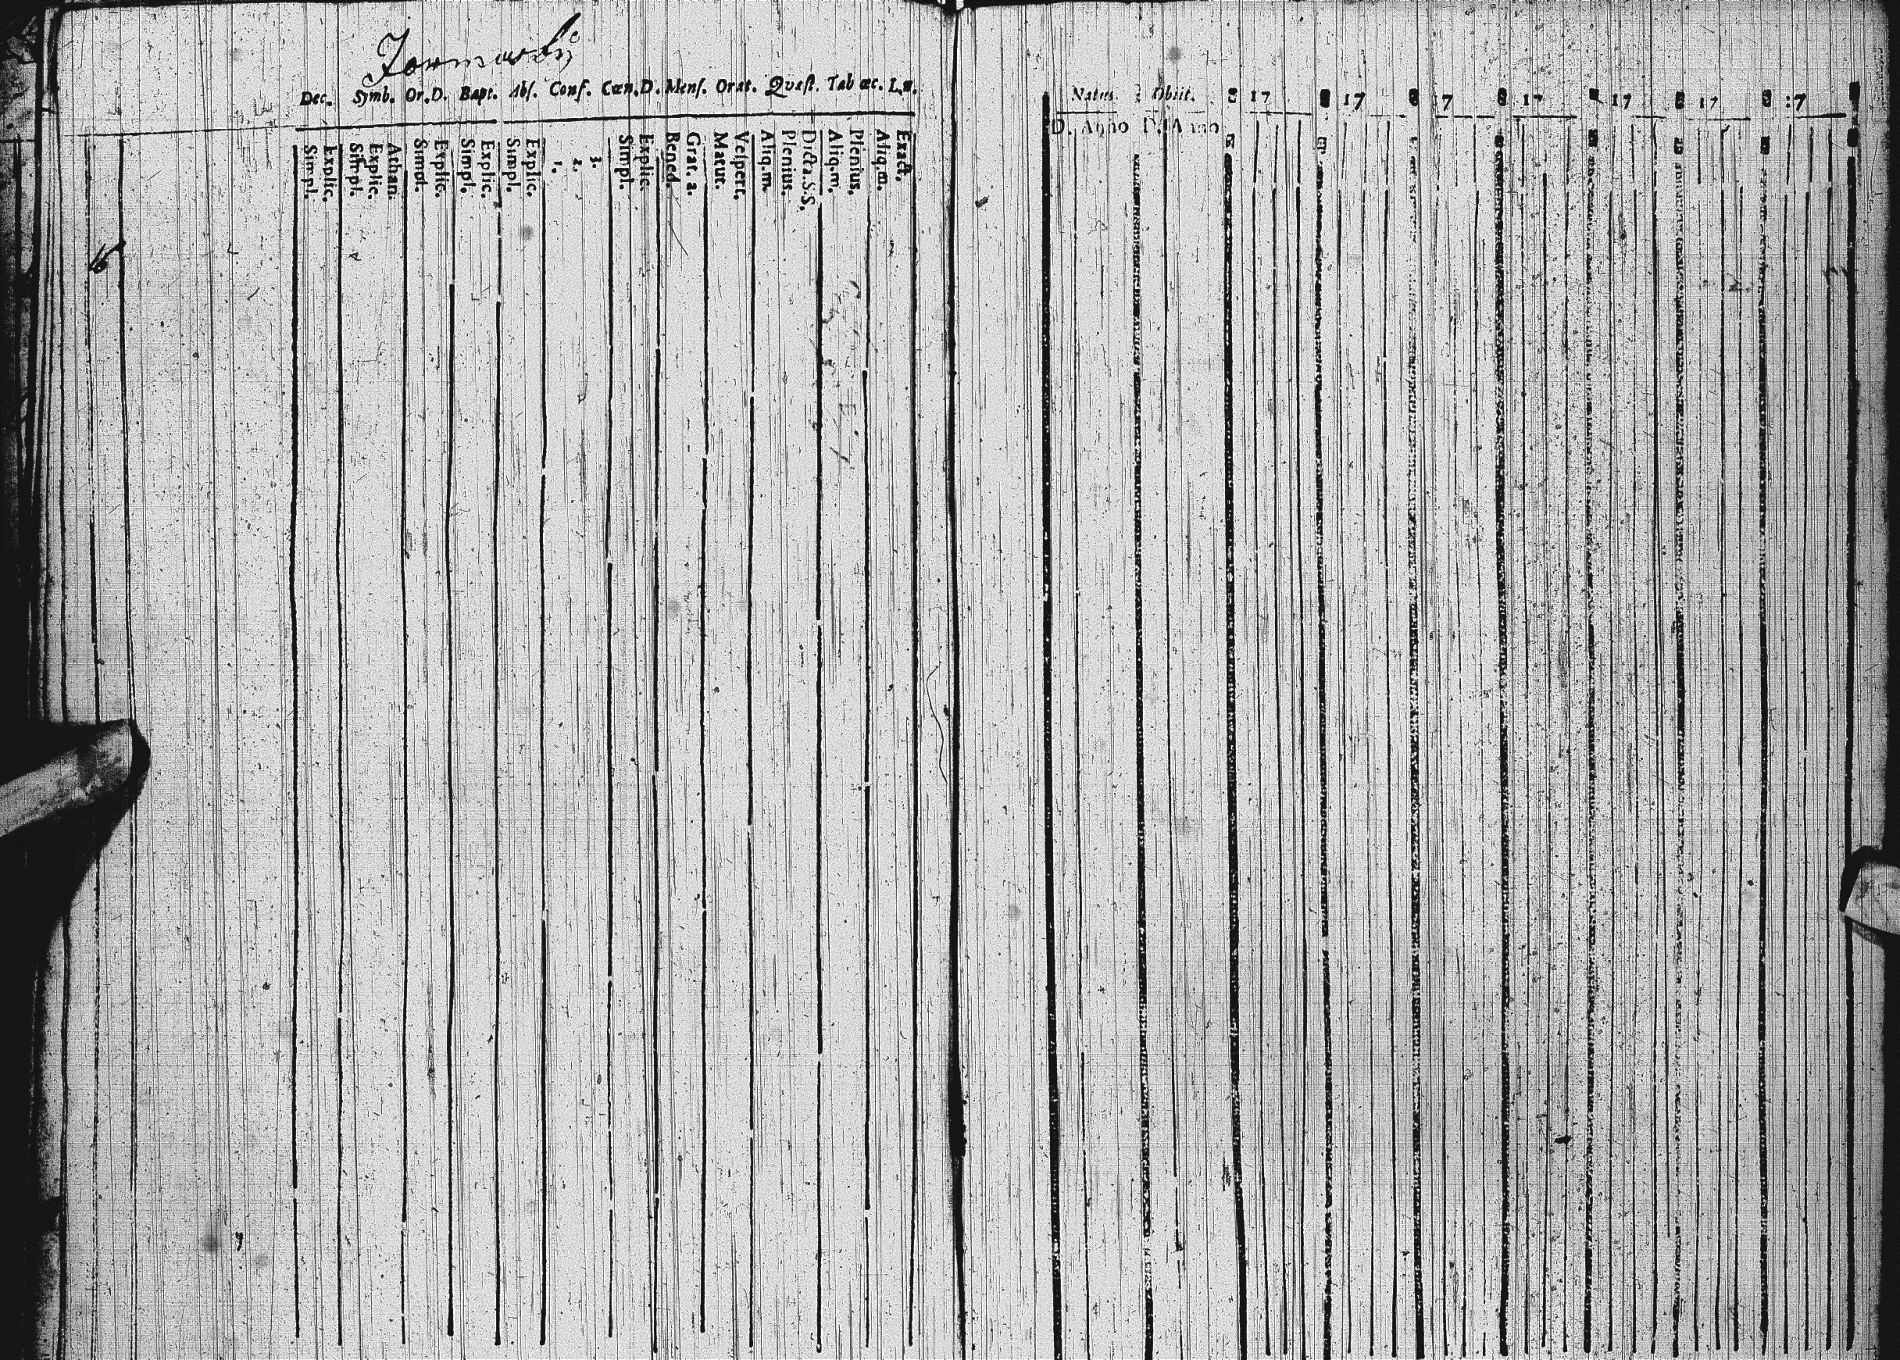 Dec. Symb. Or. D. Bapt. Abs. Conf. Cœn. D. Mens. Orat. Quæst. Tab œc. L. n.
Simpl. Explic. Simpl. Explic. Athan. Simpl. Explic. Simpl. Explic. Simpl. Explic. 1. 2. 3. Simpl. Explic. Bened. Grat. a. Matut. Vespert. Aliq. m. Plenius. Dicta. S. S. Aliq. m. Plenius. Aliq. m. Exact.
Natus. Obiit. 17 17 17 17 17 17 17
D. Anno D. Anno